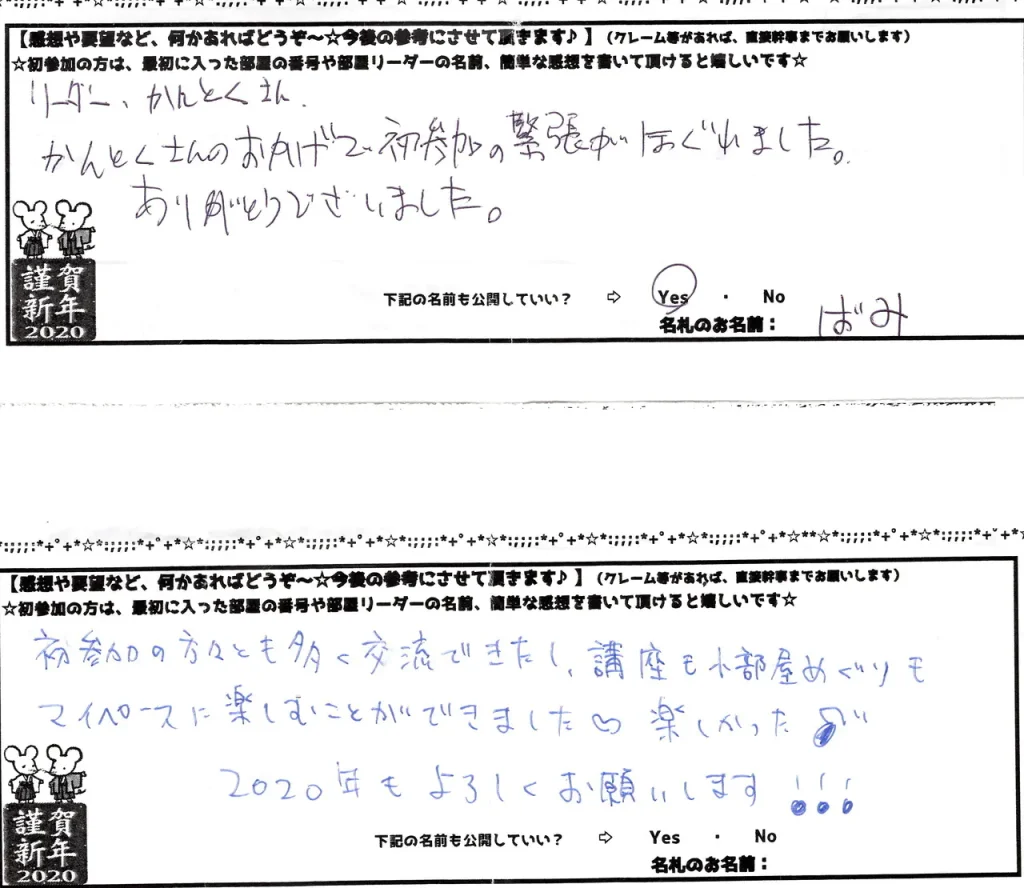 【感想や要望など、何かあればどうぞ～☆今後の参考にさせて頂きます♪】（クレーム等があれば、直接幹事までお願いします）
☆初参加の方は、最初に入った部屋の番号や部屋リーダーの名前、簡単な感想を書いて頂けると嬉しいです☆
リーダー、かんとくさん.
かんとくさんのおかげで初参加の緊張がほぐれました。
ありがとうございました。
謹賀
新年
2020
下記の名前も公開していい？ ⇨ Yes ・ No
名札のお名前： ばみ
*:;;;;:*+°+*☆*:;;;;:*+°+*☆*:;;;;:*+°+*☆*:;;;;:*+°+*☆*:;;;;:*+°+*☆*:;;;;:*+°+*☆**☆*:;;;;:*+°+*☆*:;;;;:*+°+*
【感想や要望など、何かあればどうぞ～☆今後の参考にさせて頂きます♪】（クレーム等があれば、直接幹事までお願いします）
☆初参加の方は、最初に入った部屋の番号や部屋リーダーの名前、簡単な感想を書いて頂けると嬉しいです☆
初参加の方々とも多く交流できたし、講座も小部屋めぐりも
マイペースに楽しむことができました♡ 楽しかった♪
2020年もよろしくお願いします!!!
謹賀
新年
2020
下記の名前も公開していい？ ⇨ Yes ・ No
名札のお名前：